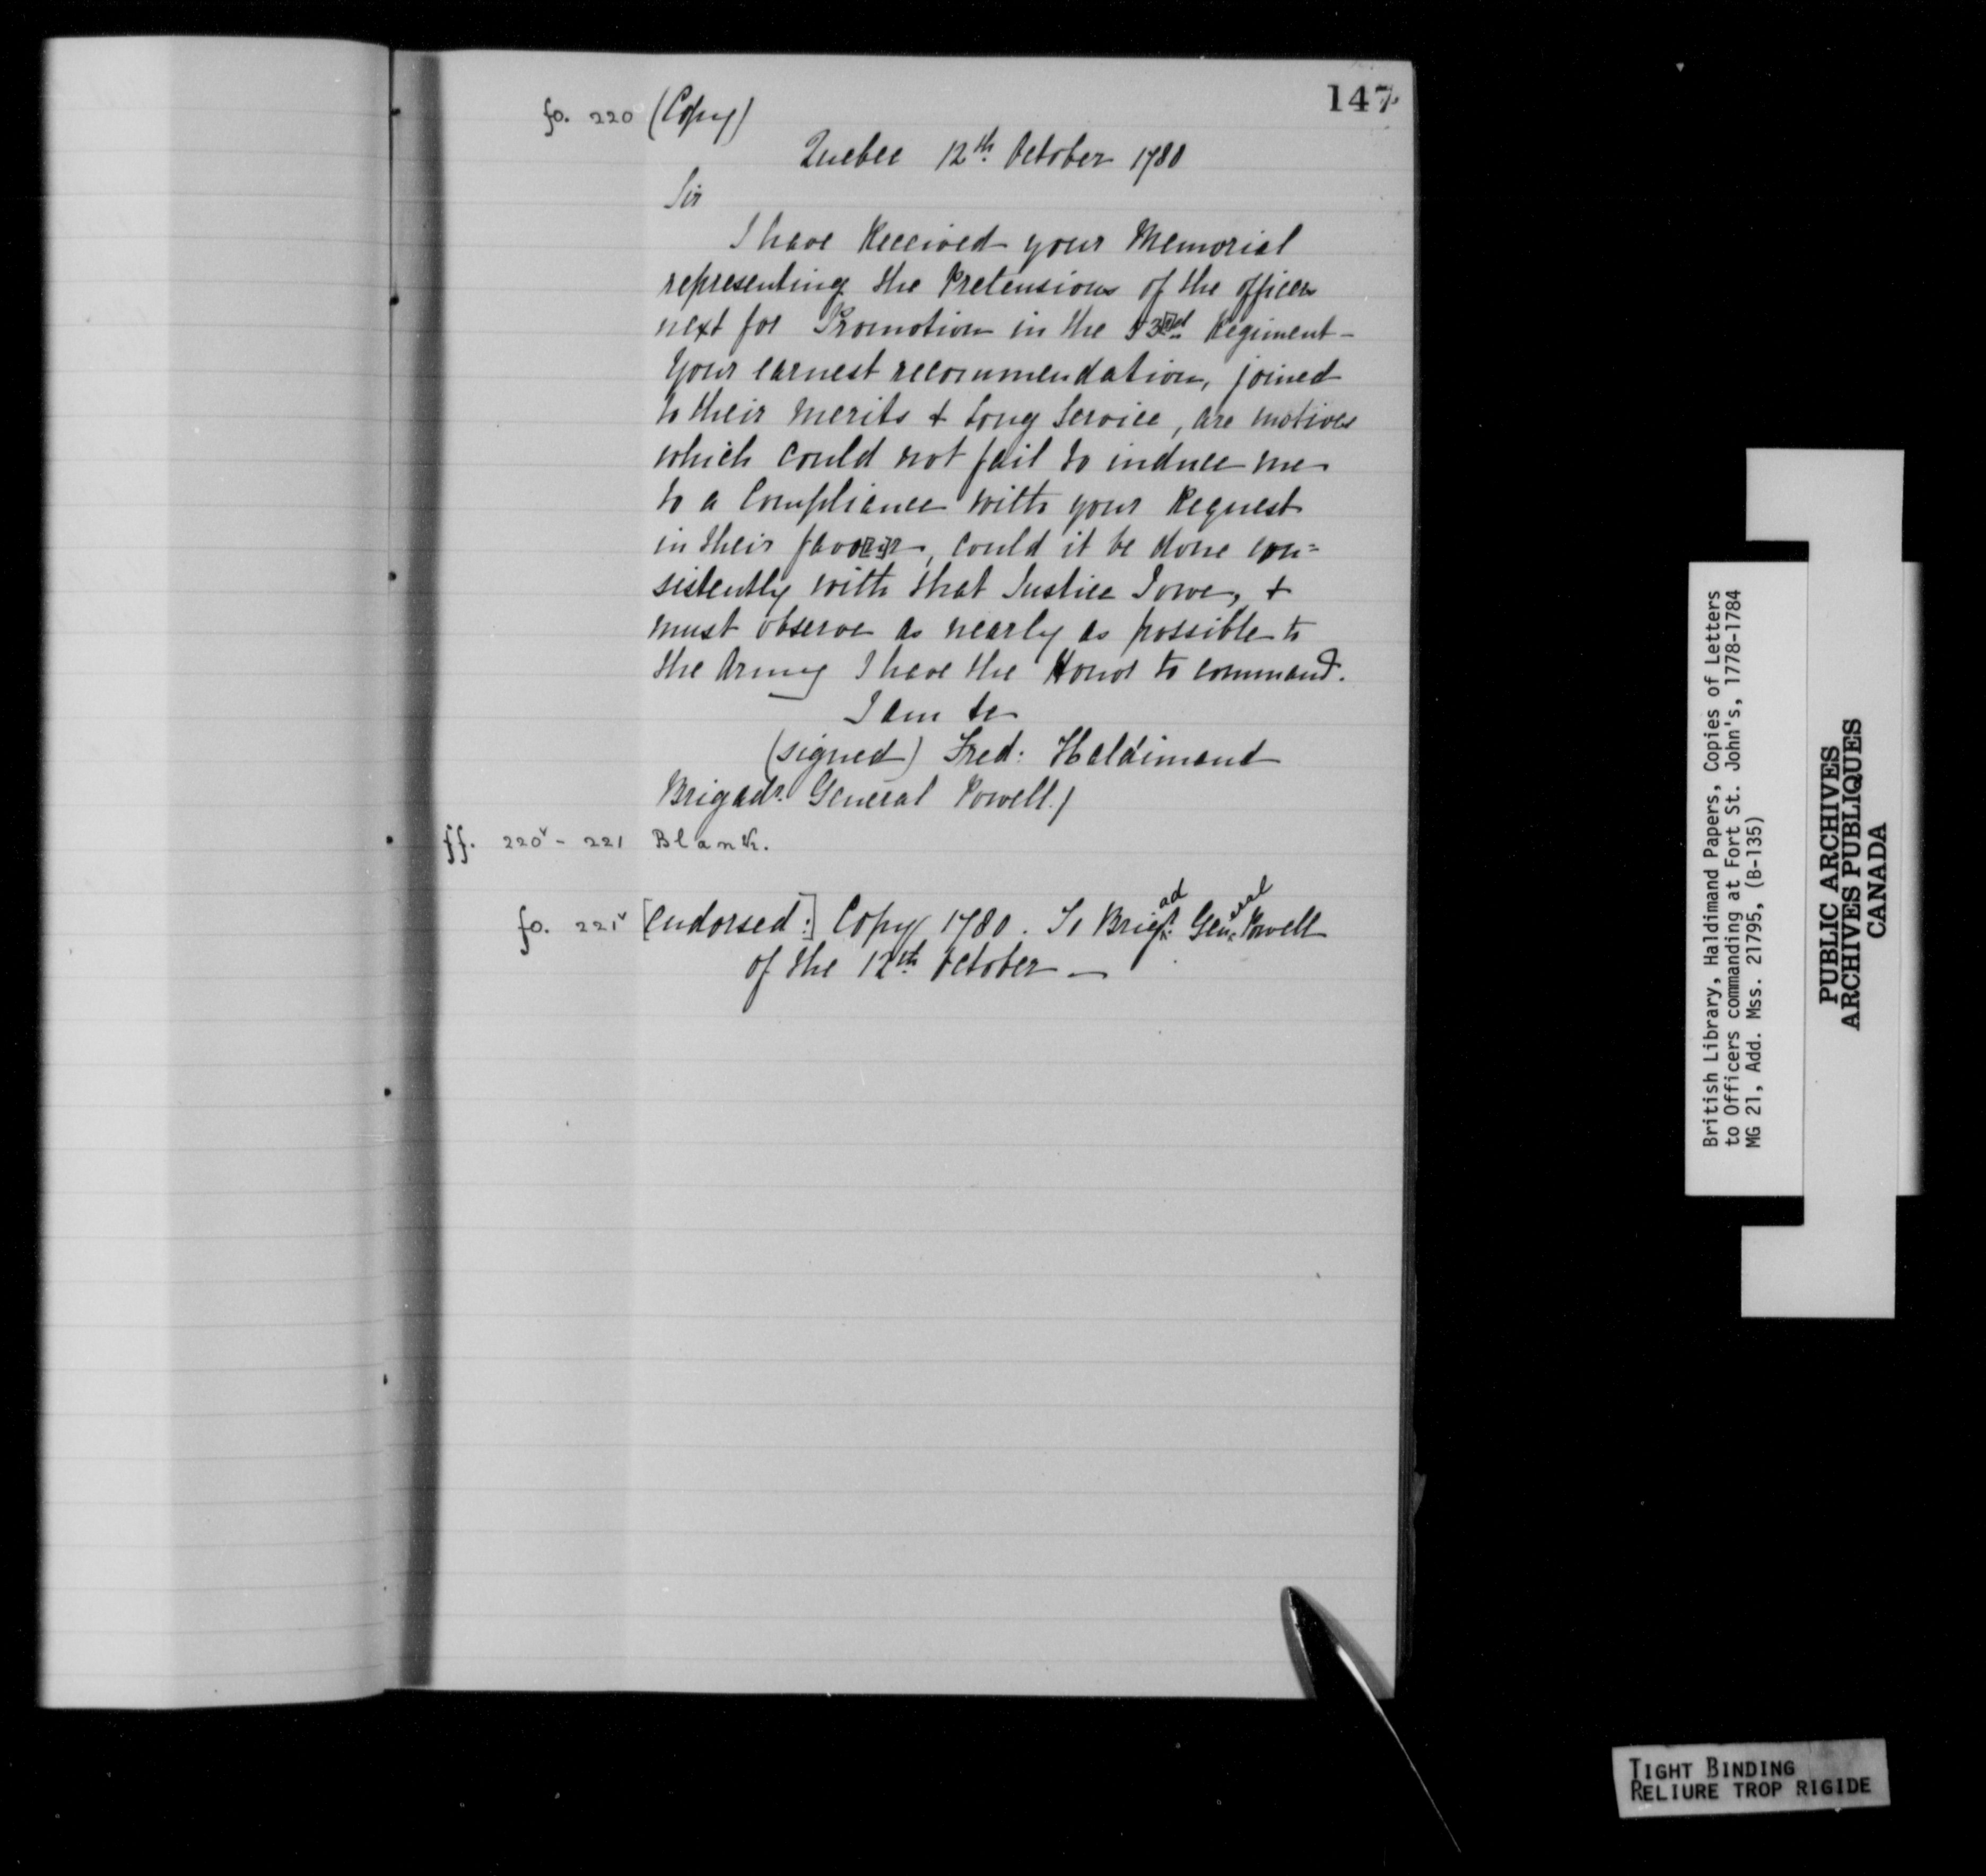 147
fo. 220 (Copy)
Quebec 12th October 1780
Sir
I have Received your Memorial
representing the Pretensions of the officers
next for Promotion in the 53[r]d Regiment -
Your earnest recommendation, joined
to their merits & Long Service, are motives
which could not fail to induce me
to a Compliance with your Request
in their favo[u]r, could it be done con=
sistently with that Justice I owe, &
must observe as nearly as possible to
the Army I have the Honor to command.
I am &c
(signed) Fred: Haldimand
Brigadr. General Powell.)
ff. 220v - 221 Blank.
fo. 221v [Endorsed:] Copy 1780. To Brigad. General Powell
of the 12th October —
British Library, Haldimand Papers, Copies of Letters
to Officers commanding at Fort St. John's, 1778-1784
MG 21, Add. Mss. 21795, (B-135)
PUBLIC ARCHIVES
ARCHIVES PUBLIQUES
CANADA
TIGHT BINDING
RELIURE TROP RIGIDE